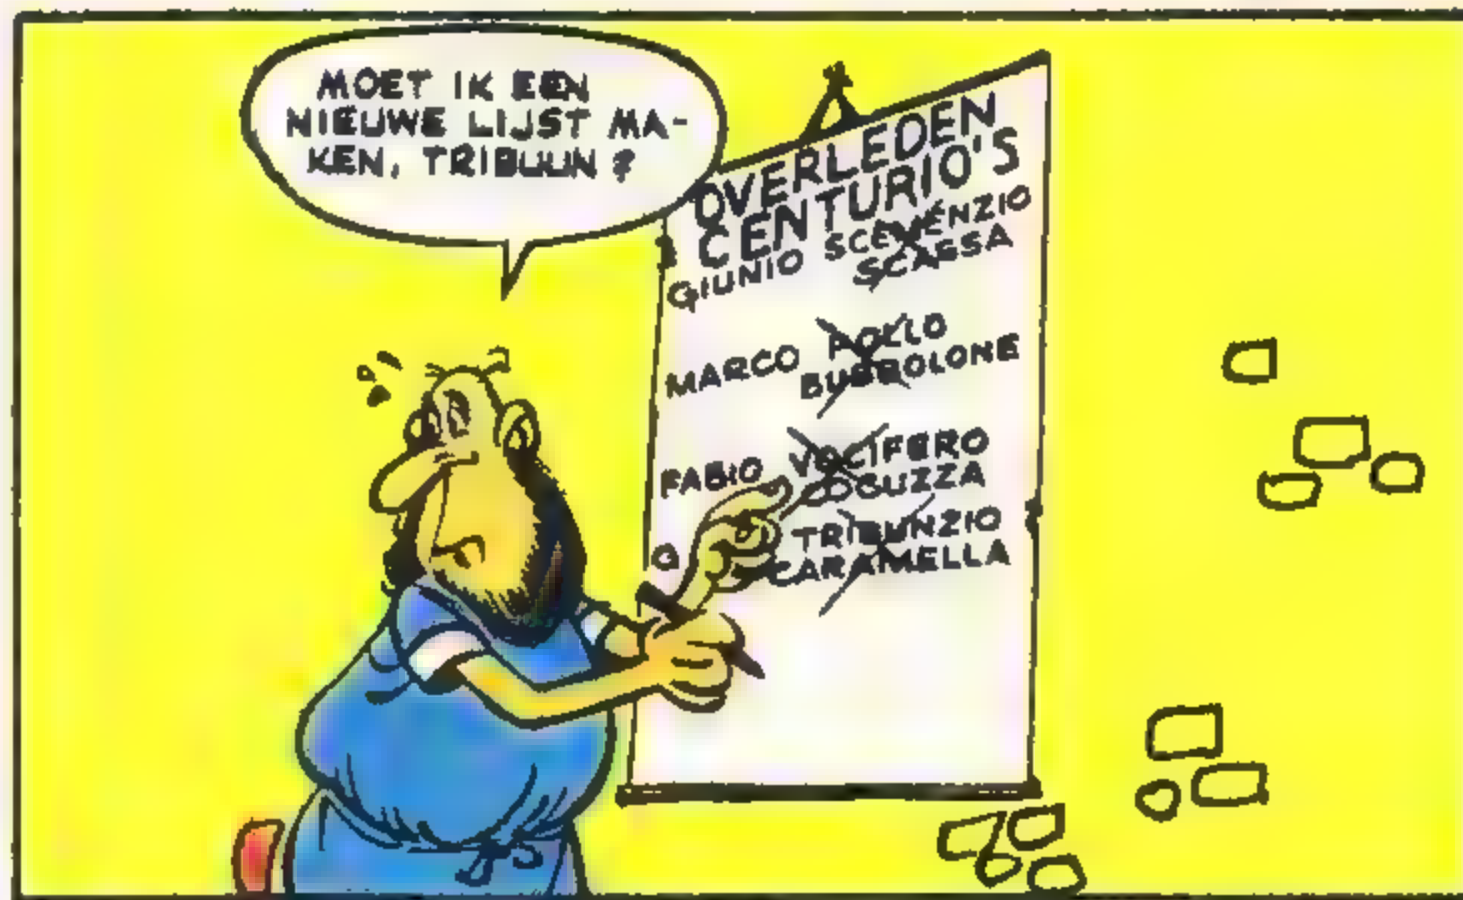 MOET IK EEN
NIEUWE LIJST MA-
KEN, TRIBUUN?
OVERLEDEN
CENTURIO'S
GIUNIO SCEMENZIO
SCASSA
MARCO POLLO
BUBBOLONE
FABIO VOCIFERO
COCUZZA
G TRIBUNZIO
CARAMELLA